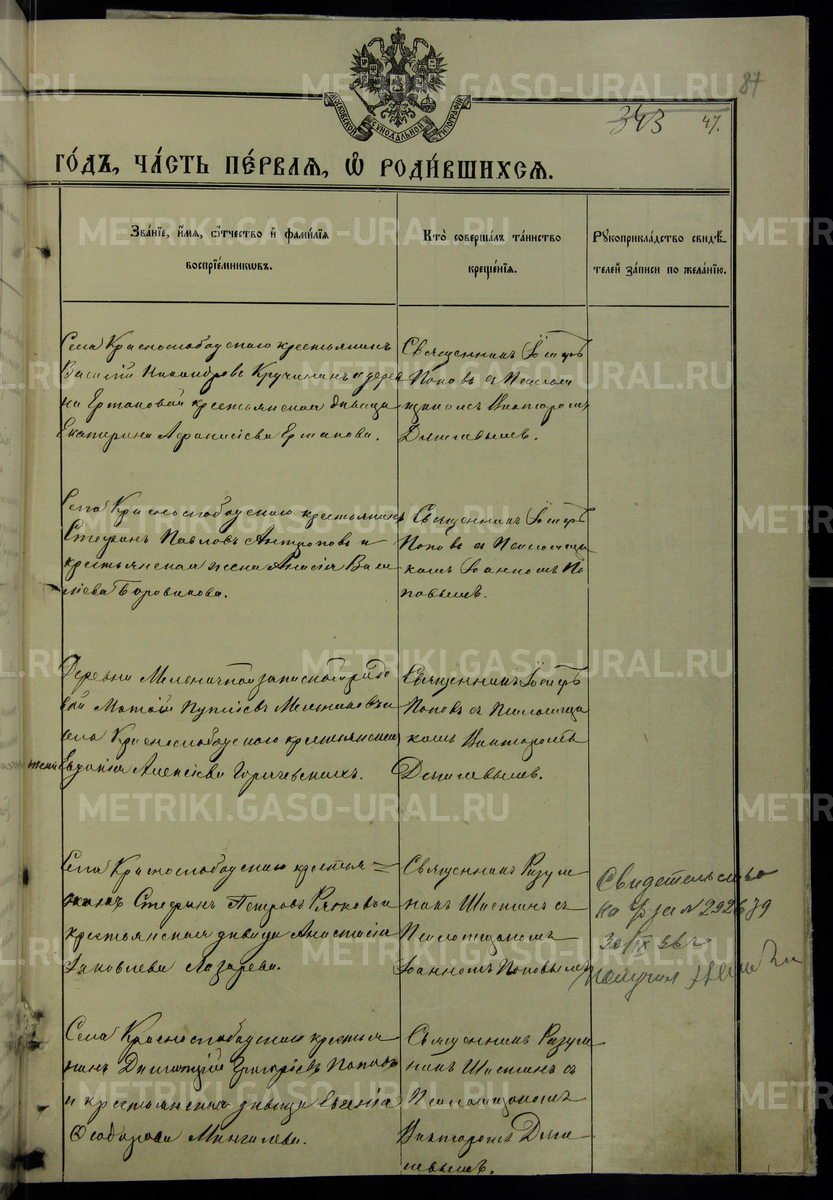 87
343
47.
МОСКОВСКОЙ СѴНОДАЛЬНОЙ ТИПОГРАФІИ
ГО́ДЪ, ЧА́СТЬ ПЕ́РВАЯ, Ѡ҆ РОДИ́ВШИХСЯ.
Зва́нїе, и҆́мя, ѻ҆́тчество и҆ фами́лїя
воспрїе́мникѡвъ.
Кто̀ соверша́лъ та́инство
креще́нїя.
Рꙋкоприкла́дство свидѣ́-
телей за́писи по жела́нїю.
Села Краснослободскаго крестьянинъ
Василій Никандровъ Кручининъ и дерев
ни Ертаковой крестьянская дѣвица
Екатерина Афанасіева Ертакова.
Священникъ Петръ
Поповъ съ Псалом
щикомъ Викторомъ
Села Краснослободскаго крестьянинъ
Стефанъ Павловъ Антроповъ и
крестьянская жена Анасія Васи
лієва Боровикова.
Священникъ Петръ
Поповъ съ Псаломщи
комъ Іоанномъ По
повымъ.
Деревни Мельничной запасной рядо
вой
села Краснослободскаго крестьянская
жена Евдокія Алексіева Горичевскихъ.
Священникъ Петръ
Поповъ съ Псаломщи
комъ Викторомъ
Села Краснослободскаго крестья=
нинъ Стефанъ Петровъ и
крестьянская дѣвица Анастасія
Іаковлева Лазарева.
Священникъ Разум
никъ Шастинъ съ
Псаломщикомъ
Іоанномъ Поповымъ
Свидетельство
на №292679
30/IX 36 г
получил
Села Краснослободскаго крестья
нинъ Димитрій Григоріевъ Поповъ
и крестьянская дѣвица Евгенія
Феодорова Мингалева.
Священникъ Разум
никъ Шастинъ съ
Псаломщикомъ
Викторомъ
METRIKI.GASO-URAL.RU